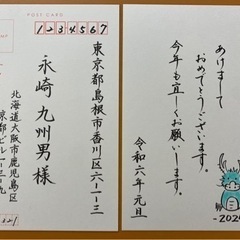 POST CARD
1234567
東京都島根市香川区六-一-三
永崎 九州男様
北海道大阪市鹿児島区
京都ビル一-三-九
あけまして
おめでとうございます。
今年も宜しくお願いします。
令和六年元旦
-2024-